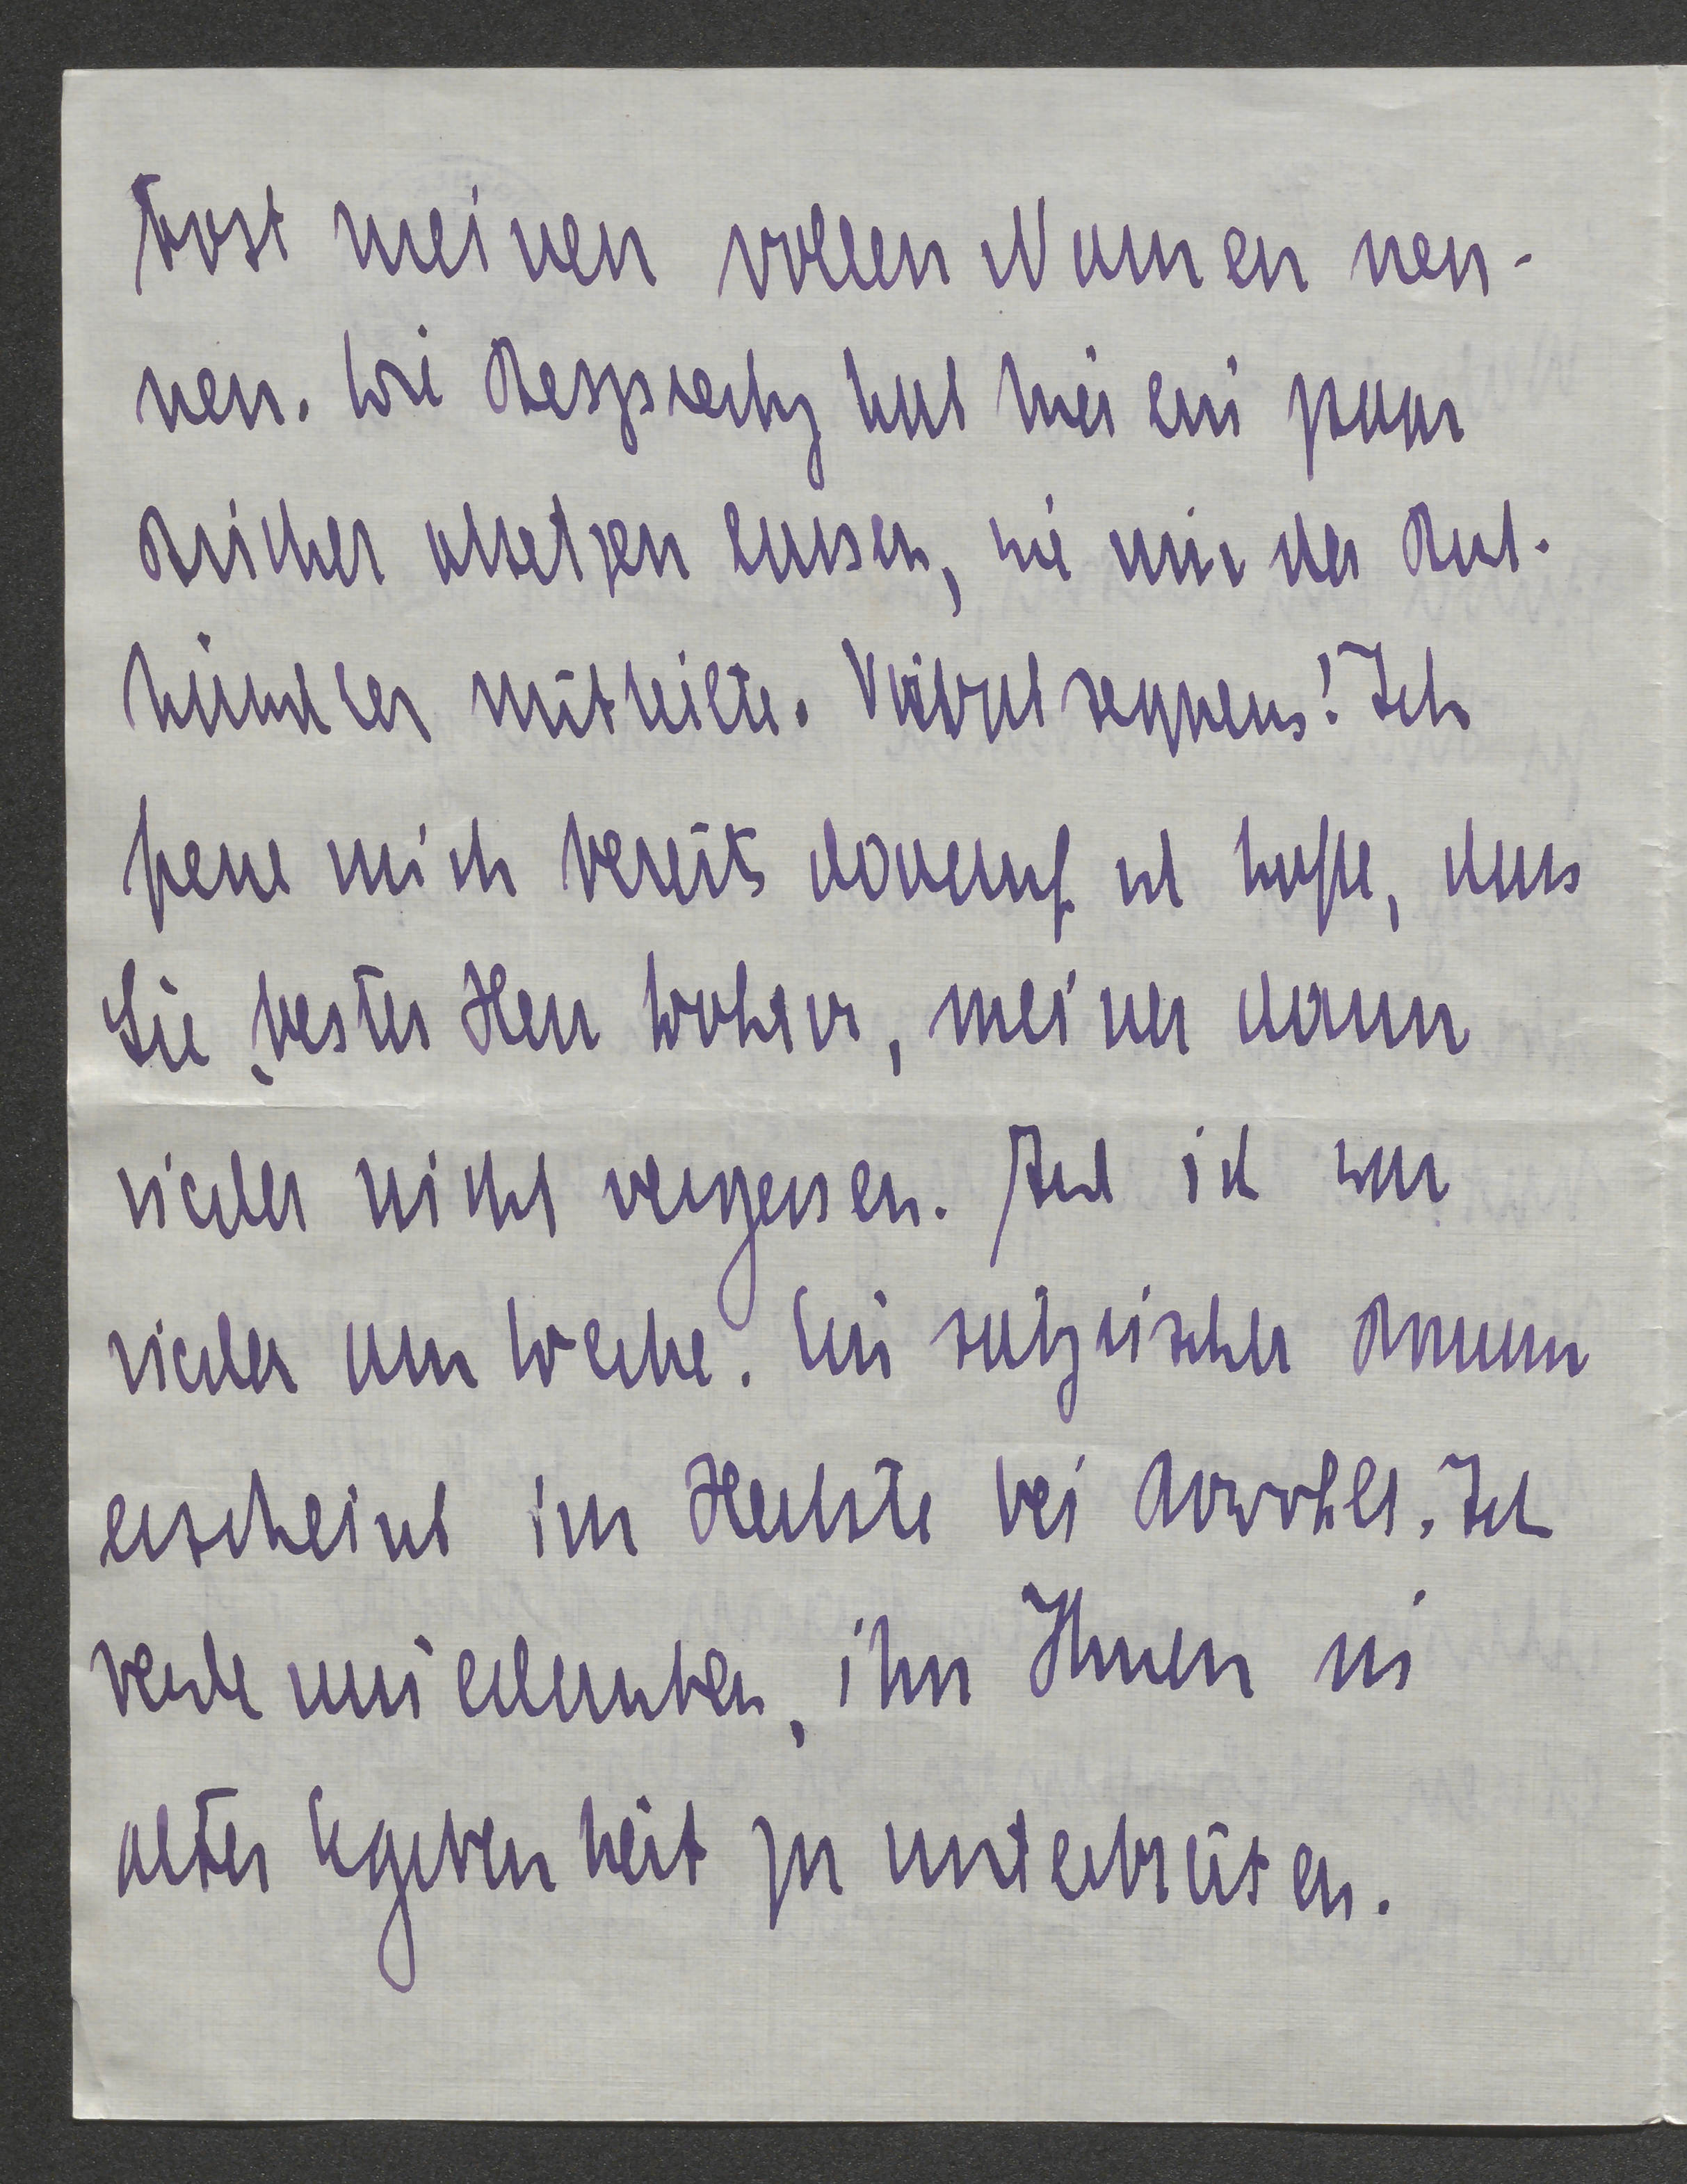 trost meinen vollen Namen nen-
nen. Die Besprechg hat hier ein paar
Bücher absetzen lassen, wie mir der Buch-
händler mitteilte. Vivat sequens! Ich
freue mich bereits darauf und hoffe, dass
Sie, bester Herr, meiner dann
wieder nicht vergessen. Auch ich war
wieder am Werke. Ein satyrischer Roman
erscheint im Herbste bei Rowohlt. Ich
werde mir erlauben, ihn Ihnen in
alter Ergebenheit zu unterbreiten.